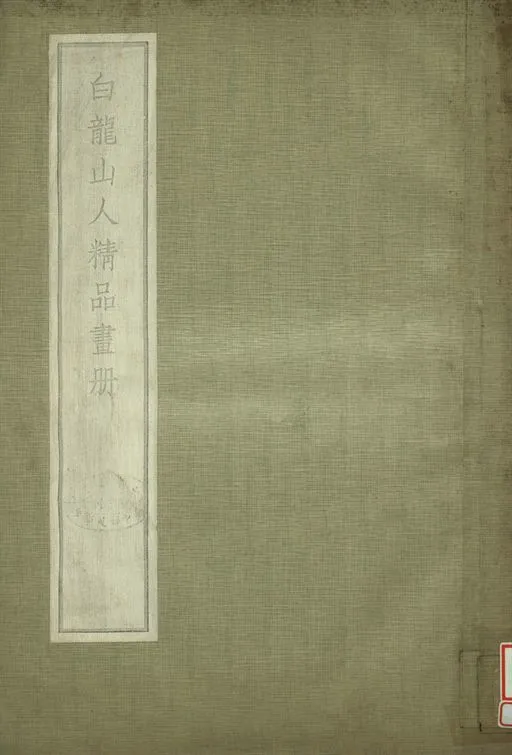 白龍山人精品畫册